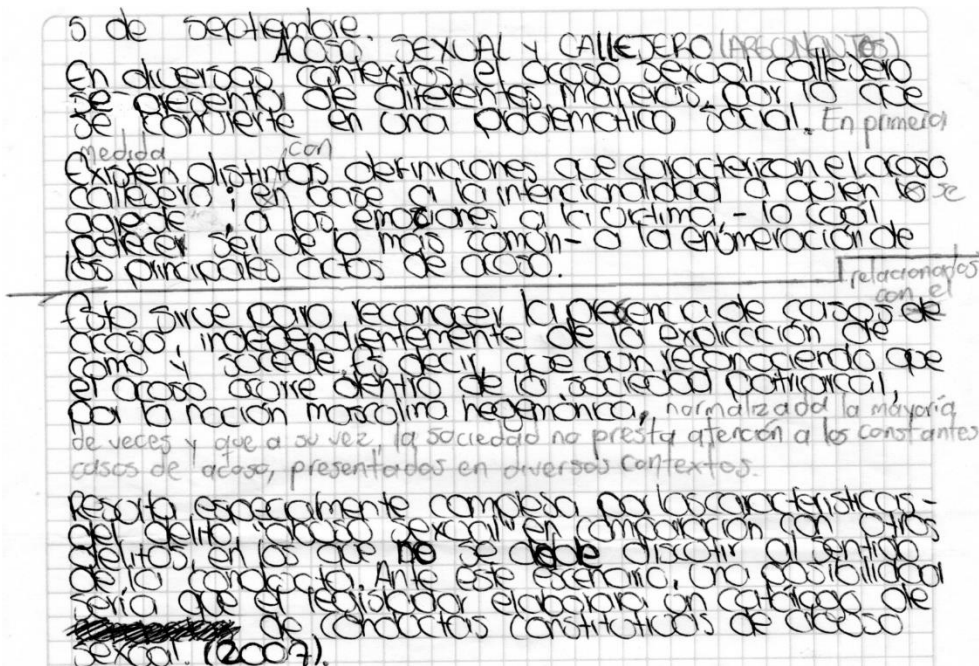 5 de septiembre.
ACOSO SEXUAL Y CALLEJERO (ARGONAUTAS)
En diversos contextos, el acoso sexual callejero
se presenta de diferentes maneras, por lo que
se convierte en una problemática social. En primera
medida con
Existen distintas definiciones que caracterizan el acoso
callejero; en base a la intencionalidad a quien lo se
agrede, a las emociones a la víctima, - lo cual
parecer ser de lo más común- o la enumeración de
los principales actos de acoso.
relacionados
con el
Esto sirve para reconocer la presencia de casos de
acoso, independientemente de la explicación de
como y sucede. Es decir, que aun reconociendo que
el acoso ocurre dentro de la sociedad patriarcal,
por la noción masculina hegemónica, normalizada la mayoría
de veces y que a su vez, la sociedad no presta atención a los constantes
casos de acoso, presentados en diversos contextos.
Resulta especialmente compleja por las características -
del delito "abuso sexual" en comparación con otros
delitos en los que no se debe discutir al sentido
de la conducta. Ante este escenario, una posibilidad
sería que el legislador elaborara un catálogo de
de conductas constitutivas de acoso
sexual. (2007).